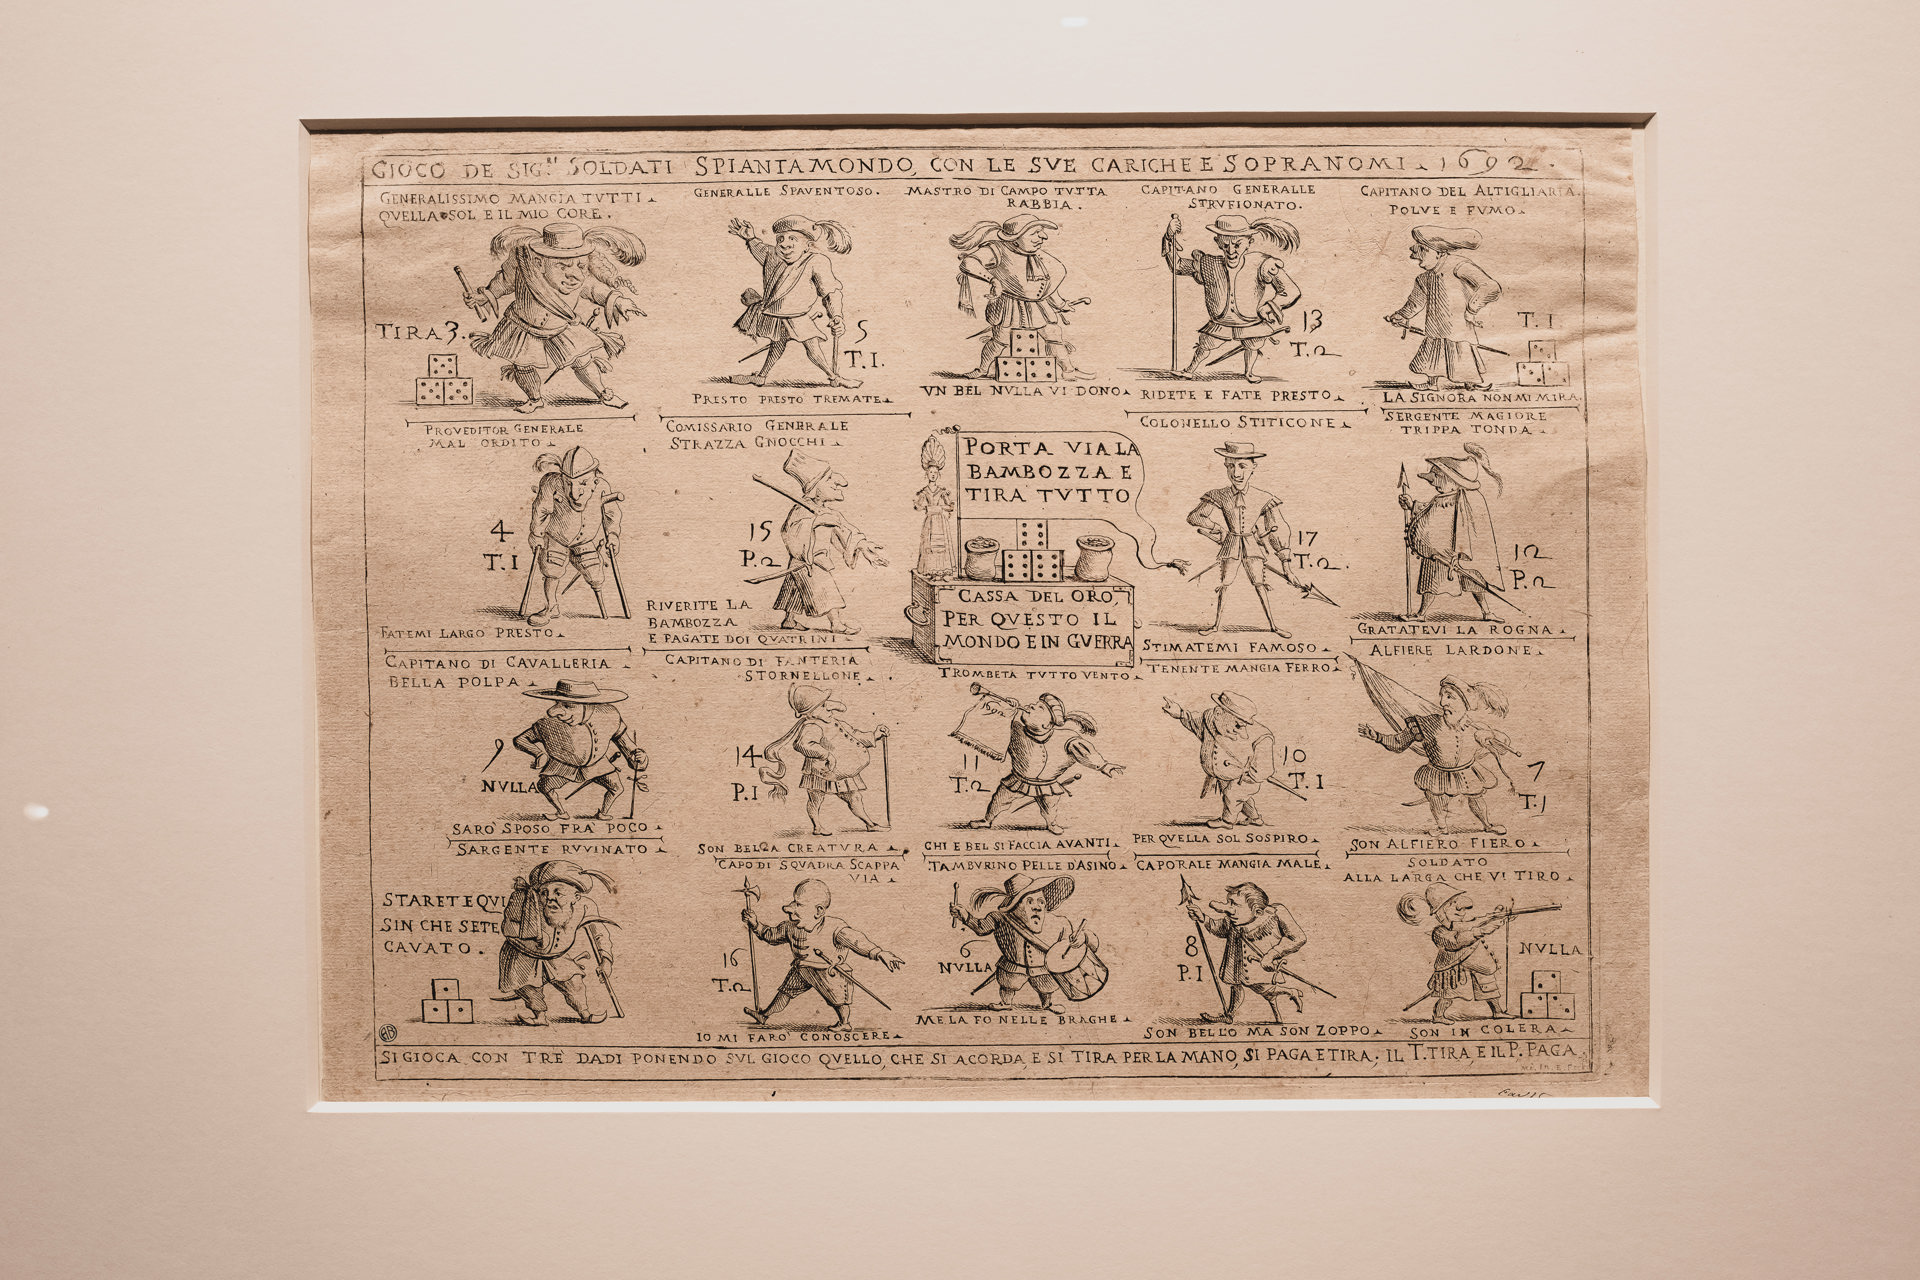 GIOCO DE SIG.RI SOLDATI SPIANTAMONDO, CON LE SVE CARICHE E SOPRANOMI 1692.
GENERALISSIMO MANGIA TVTTI
QVELLA SOL E IL MIO CORE.
TIRA 3.
GENERALLE SPAVENTOSO.
5
T.1.
PRESTO PRESTO TREMATE
MASTRO DI CAMPO TVTTA
RABBIA.
VN BEL NVLLA VI DONO
CAPITANO GENERALLE
STRVFIONATO.
13
T.2
RIDETE E FATE PRESTO
CAPITANO DEL ALTIGLIARIA.
POLVE E FVMO
T.1
LA SIGNORA NON MI MIRA.
PROVEDITOR GENERALE
MAL ORDITO
4
T.1
FATEMI LARGO PRESTO
COMISSARIO GENERALE
STRAZZA GNOCCHI
15
P.2
RIVERITE LA
BAMBOZZA
E PAGATE DOI QVATRINI
PORTA VIA LA
BAMBOZZA E
TIRA TVTTO
CASSA DEL ORO,
PER QVESTO IL
MONDO E IN GVERRA
COLONELLO STITICONE
17
T.2.
STIMATEMI FAMOSO
SERGENTE MAGIORE
TRIPPA TONDA
12
P.2
GRATATEVI LA ROGNA
CAPITANO DI CAVALLERIA
BELLA POLPA
9
NVLLA
SARO' SPOSO FRA' POCO
CAPITANO DI FANTERIA
STORNELLONE
14
P.1
SON BELLA CREATVRA
TROMBETA TVTTO VENTO
1692
11
T.2
CHI E BEL SI FACCIA AVANTI
TENENTE MANGIA FERRO
10
T.1
PER QVELLA SOL SOSPIRO
ALFIERE LARDONE
7
T.1
SON ALFIERO FIERO
SARGENTE RVVINATO
STARETE QVI
SIN CHE SETE
CAVATO.
CAPO DI SQVADRA SCAPPA
VIA
16
T.2
IO MI FARO' CONOSCERE
TAMBVRINO PELLE D'ASINO
6
NVLLA
ME LA FO NELLE BRAGHE
CAPORALE MANGIA MALE
8
P.1
SON BELLO MA SON ZOPPO
SOLDATO
ALLA LARGA CHE VI TIRO
NVLLA
SON IN COLERA
SI GIOCA CON TRE DADI PONENDO SVL GIOCO QVELLO, CHE SI ACORDA, E SI TIRA PER LA MANO, SI PAGA E TIRA. IL T. TIRA, E IL P. PAGA